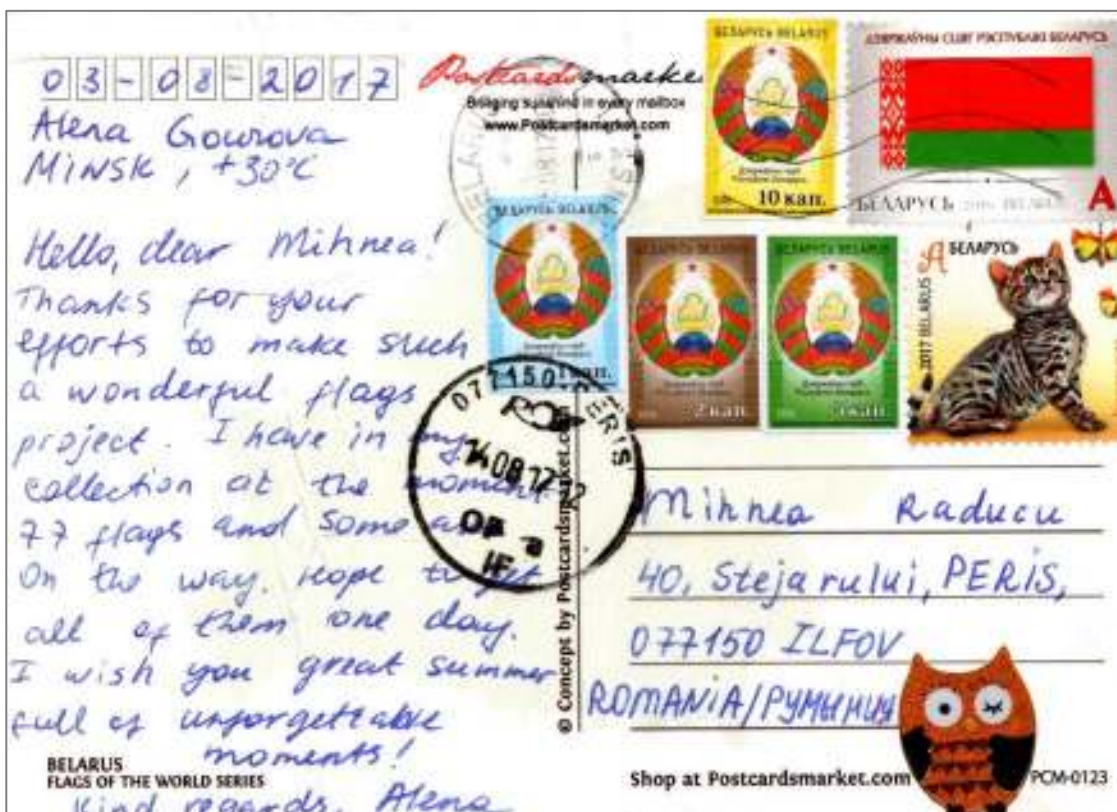 03-08-2017
Alena Gourova
MINSK, +30°C
Hello, dear Mihnea!
Thanks for your
efforts to make such
a wonderful flags
project. I have in my
collection at the moment
77 flags and some are
on the way. Hope to get
all of them one day.
I wish you great summer
full of unforgettable
moments!
Kind regards, Alena
BELARUS
FLAGS OF THE WORLD SERIES
Postcardsmarket
Bringing sunshine in every mailbox
www.Postcardsmarket.com
БЕЛАРУСЬ BELARUS
10 кап.
ДЗЯРЖАЎНЫ СЦЯГ РЭСПУБЛІКІ БЕЛАРУСЬ
БЕЛАРУСЬ
A
БЕЛАРУСЬ BELARUS
1 кап.
БЕЛАРУСЬ BELARUS
2 кап.
БЕЛАРУСЬ BELARUS
кап.
A БЕЛАРУСЬ
2017 BELARUS
077150 PERIS
14.08.17
IF
© Concept by Postcardsmarket.com
Mihnea Raducu
40, Stejarului, PERIS,
077150 ILFOV
ROMANIA/РУМЫНИЯ
Shop at Postcardsmarket.com
PCM-0123